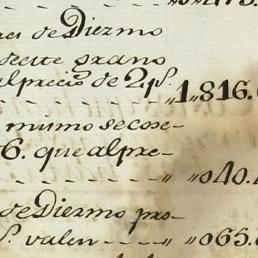 de Diezmo
grano
al precio de 2 p.s
- - - - - " 1,816.
mismo se cose-
6. que al pre-
- - - - - " " 040.
de Diezmo pro-
valen - - - " " 065.